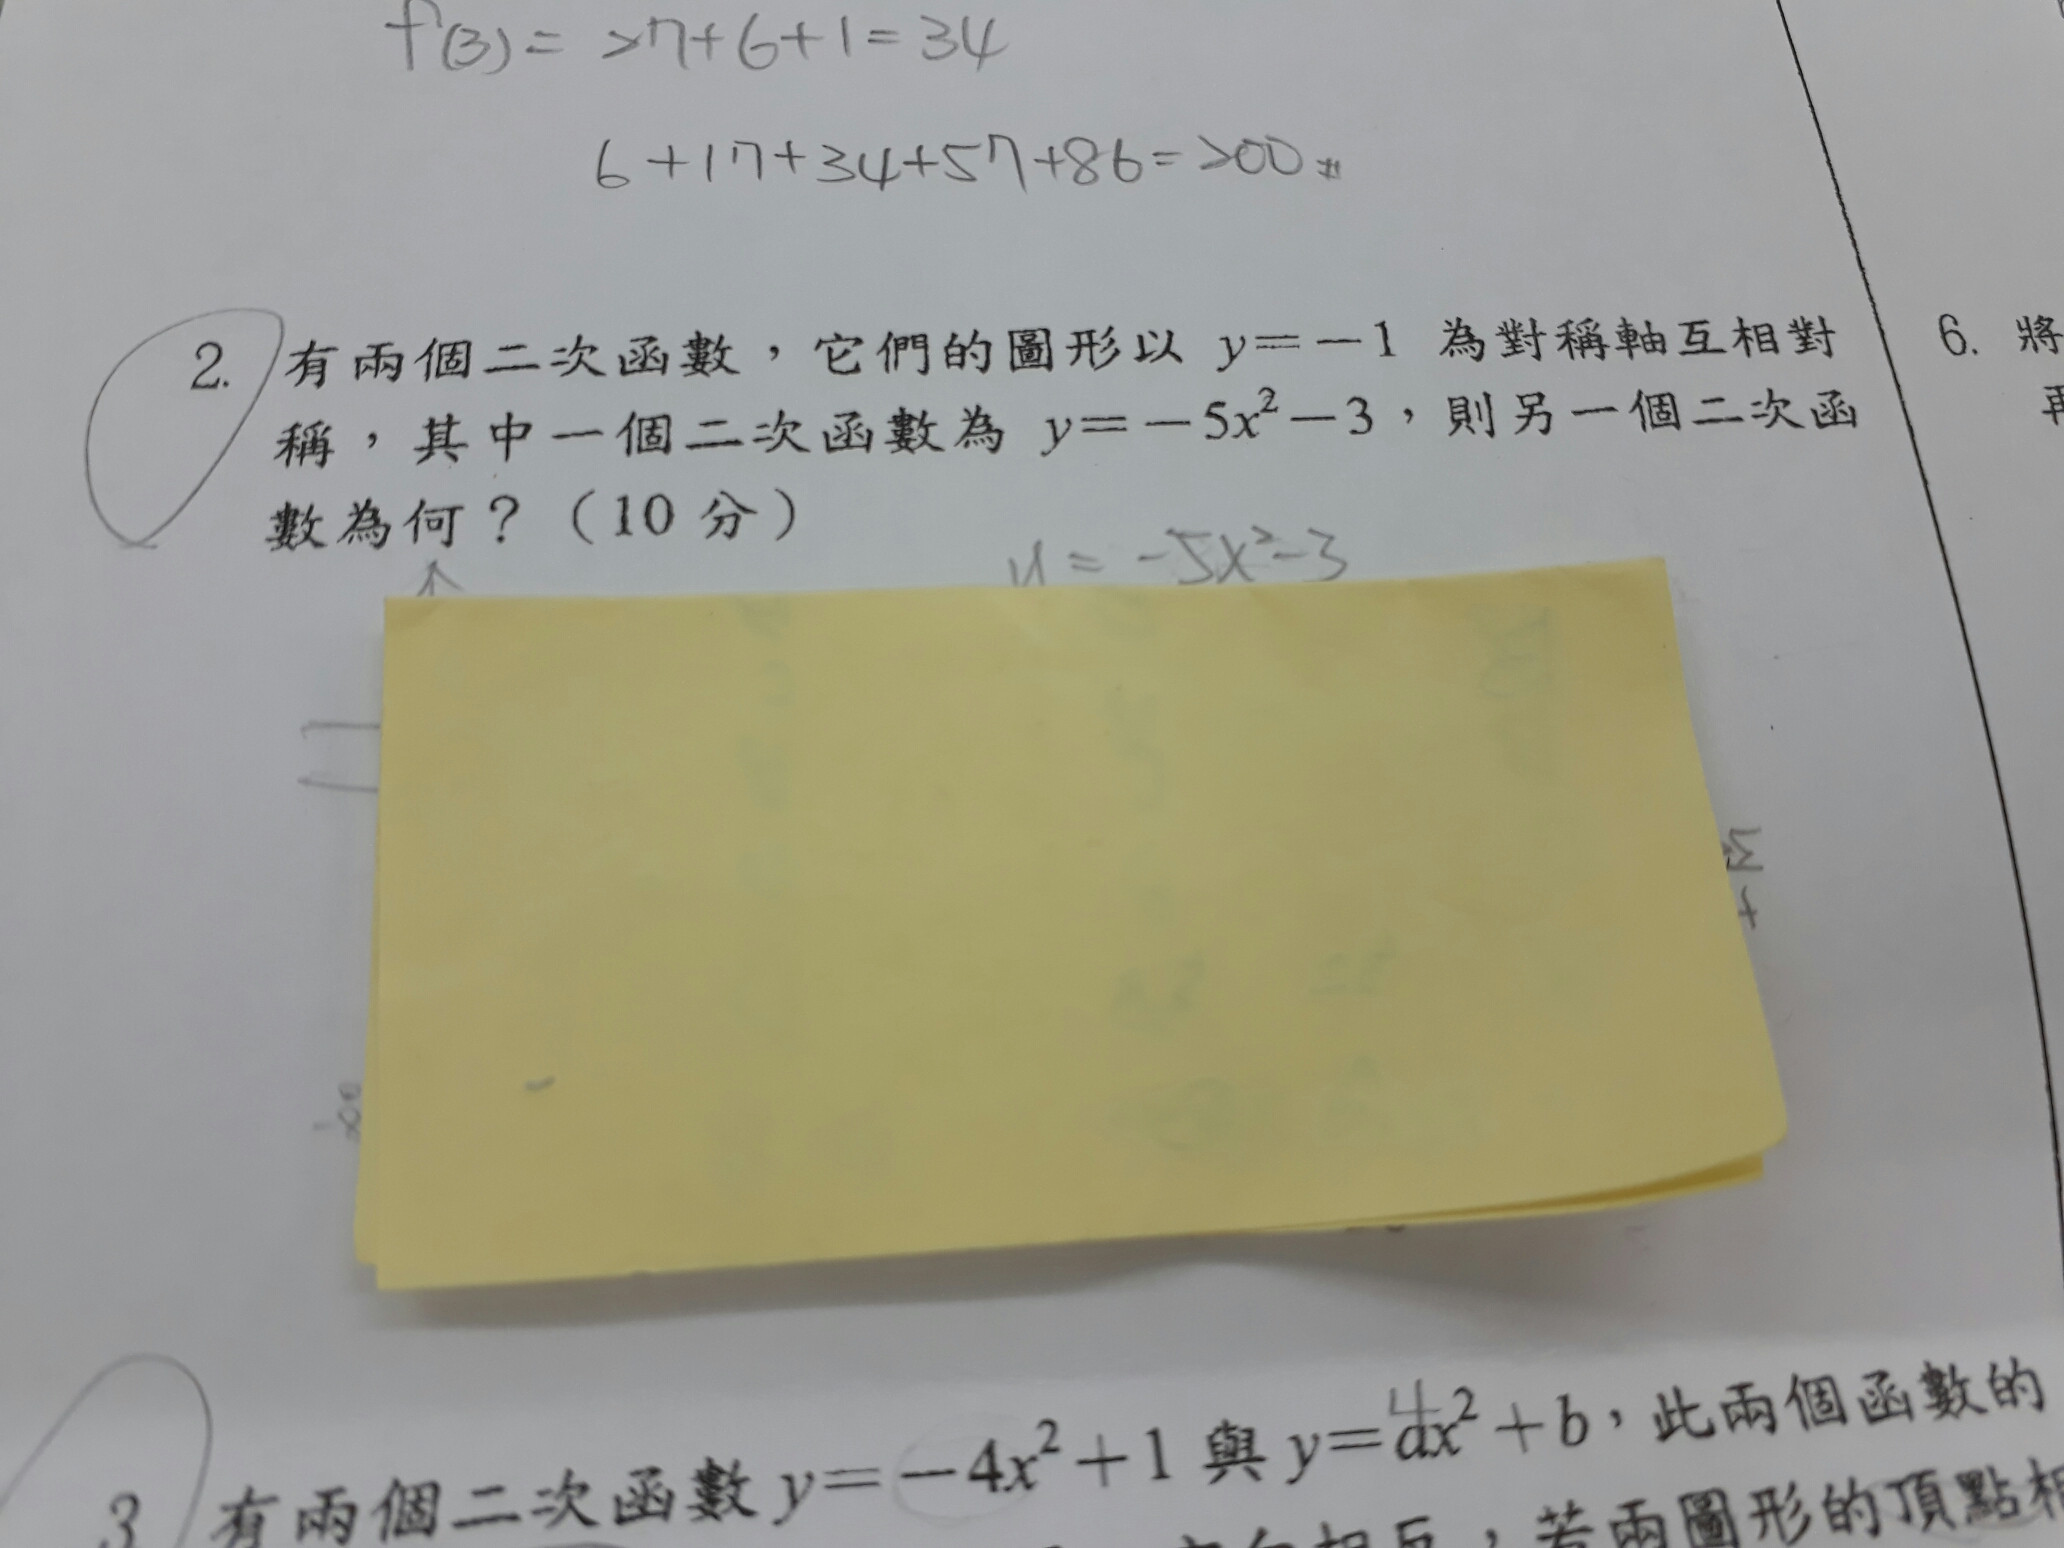 f(3) = 27+6+1=34
6+17+34+57+86=200
2. 有兩個二次函數，它們的圖形以 y=-1 為對稱軸互相對
稱，其中一個二次函數為 y=-5x²-3，則另一個二次函
數為何？（10 分）
y = -5x²-3
3 有兩個二次函數 y=-4x²+1 與 y=ax²+b，此兩個函數的
方向相反，若兩圖形的頂點相
6. 將
再